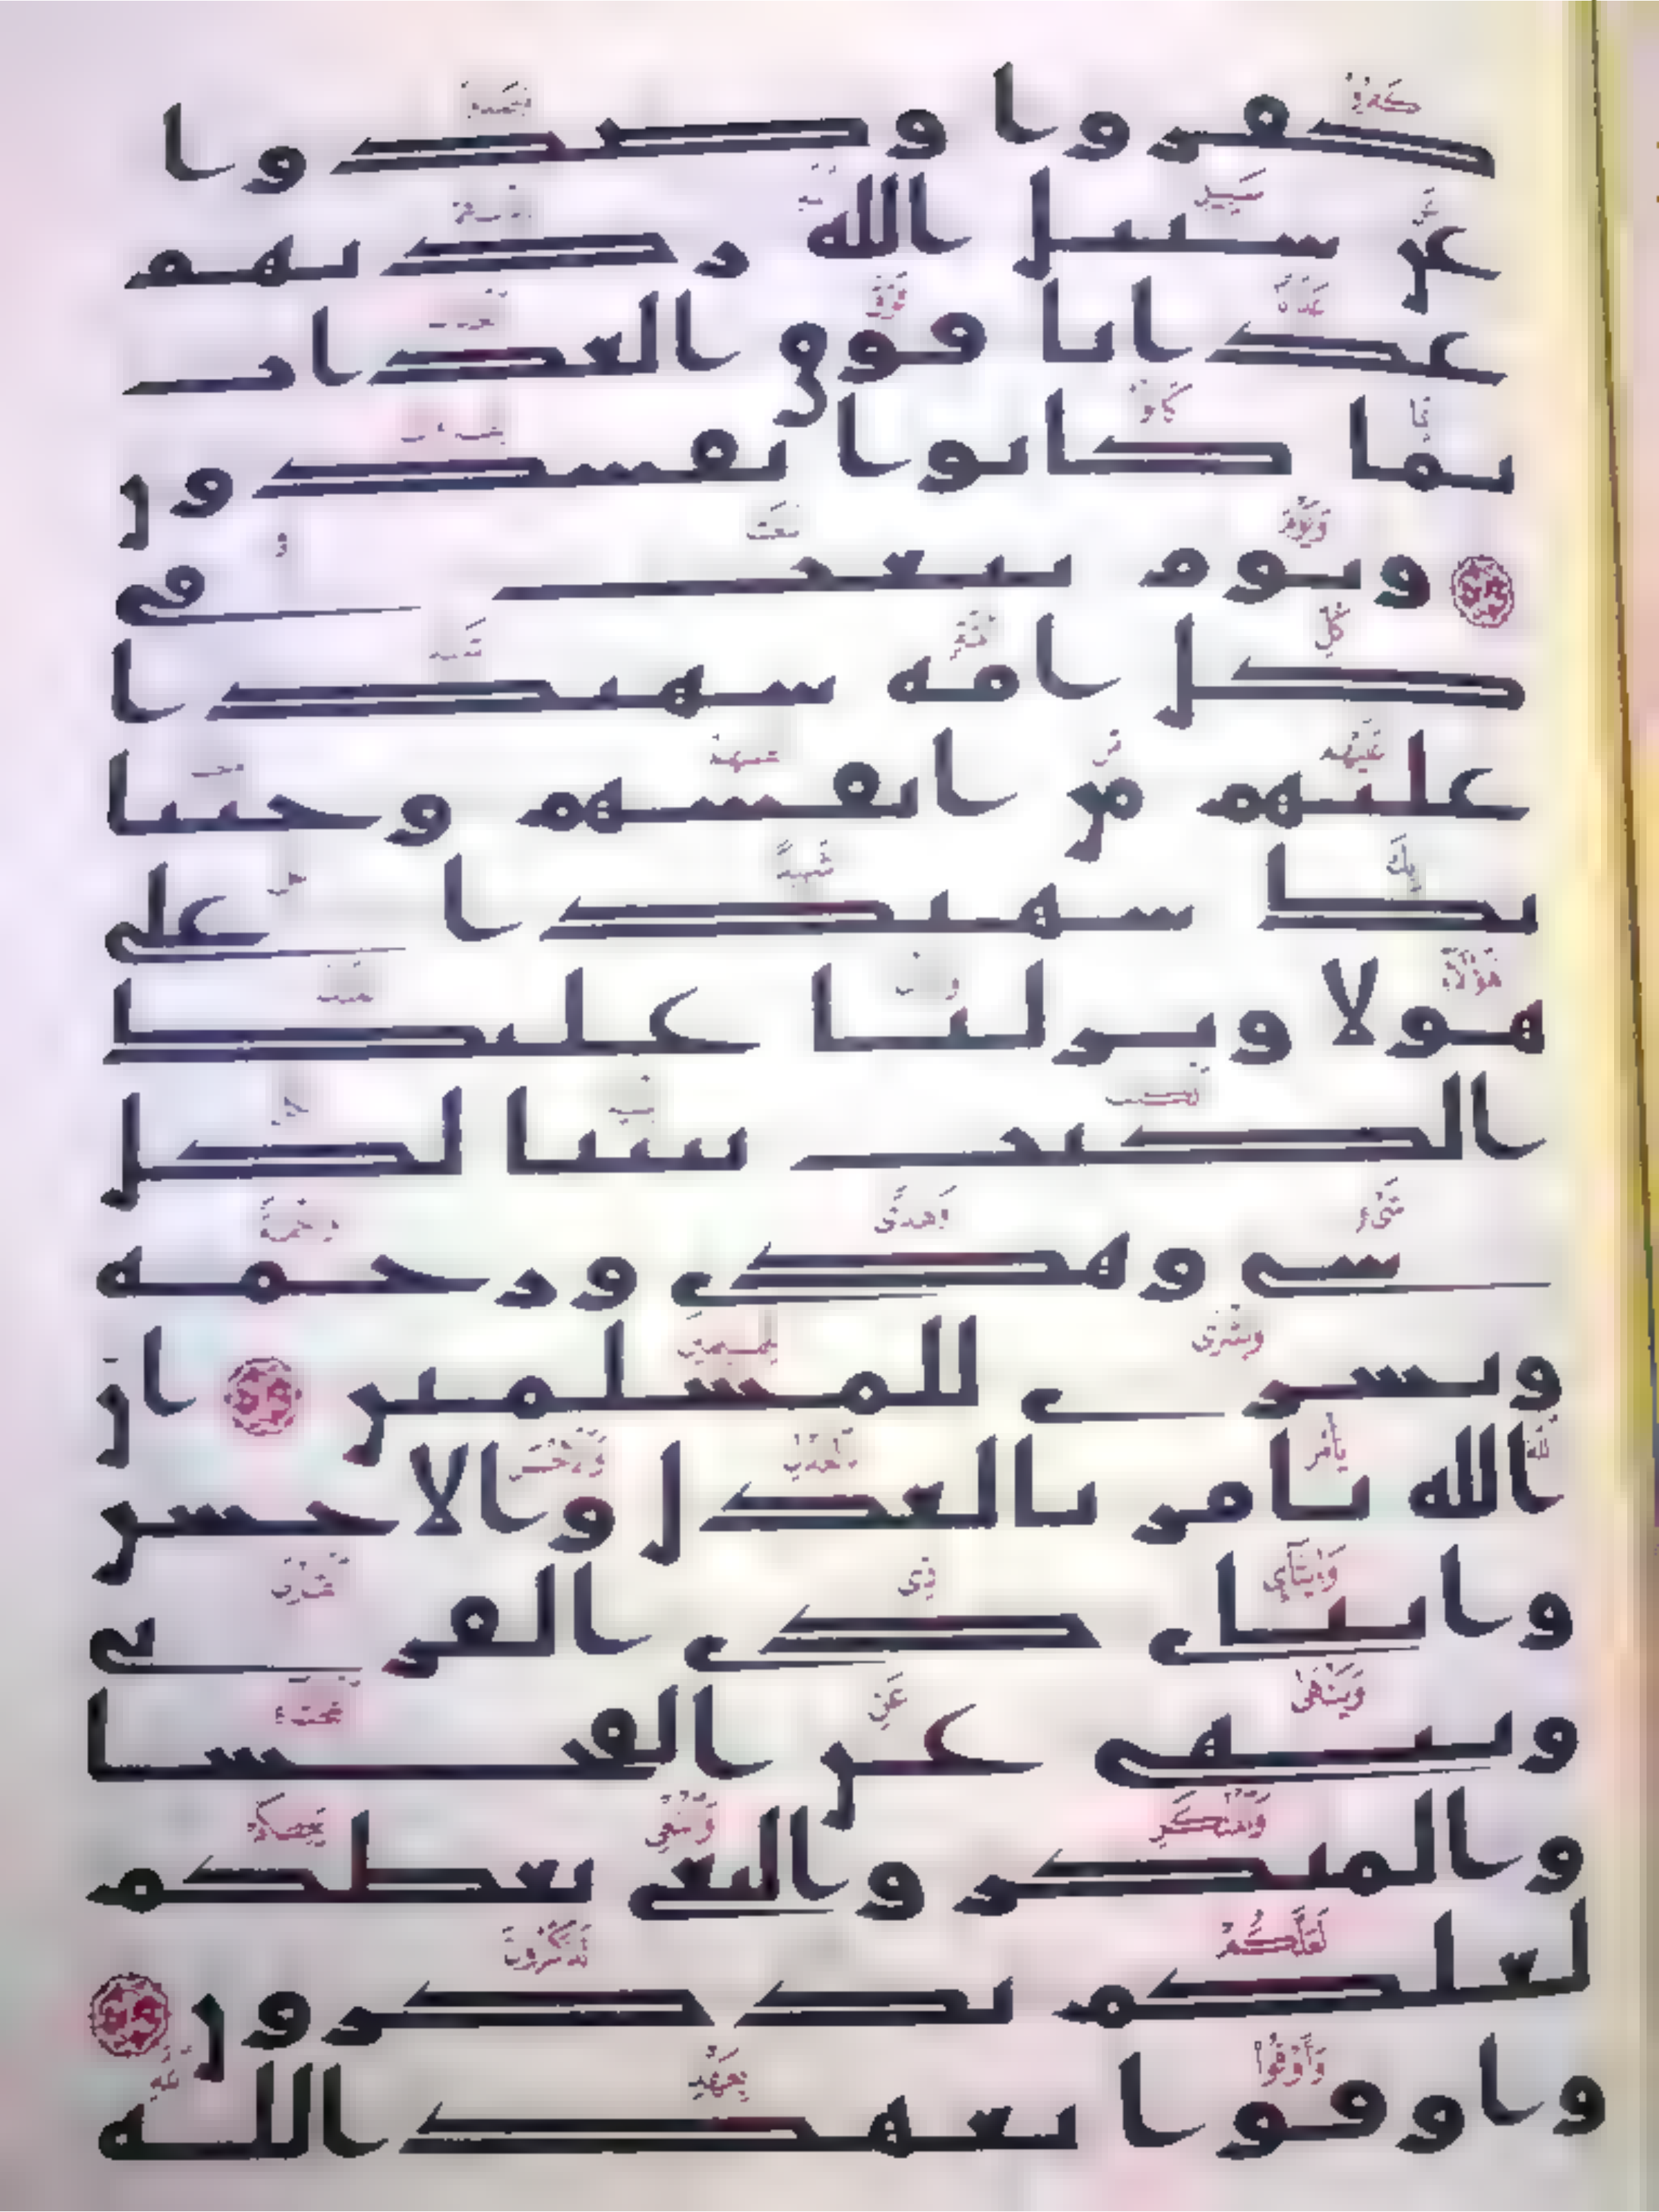 كفروا وصدوا
عن سبيل الله زدنهم
عذابا فوق العذاب
بما كانوا يفسدون
ويوم نبعث في
كل امة شهيدا
عليهم من انفسهم وجئنا
بك شهيدا على
هولا ونزلنا عليك
الكتب تبينا لكل
شي وهدى ورحمة
وبشرى للمسلمين ان
الله يامر بالعدل والاحسن
وايتاي ذي القربى
وينهى عن الفحشا
والمنكر والبغي يعظكم
لعلكم تذكرون
واوفوا بعهد الله